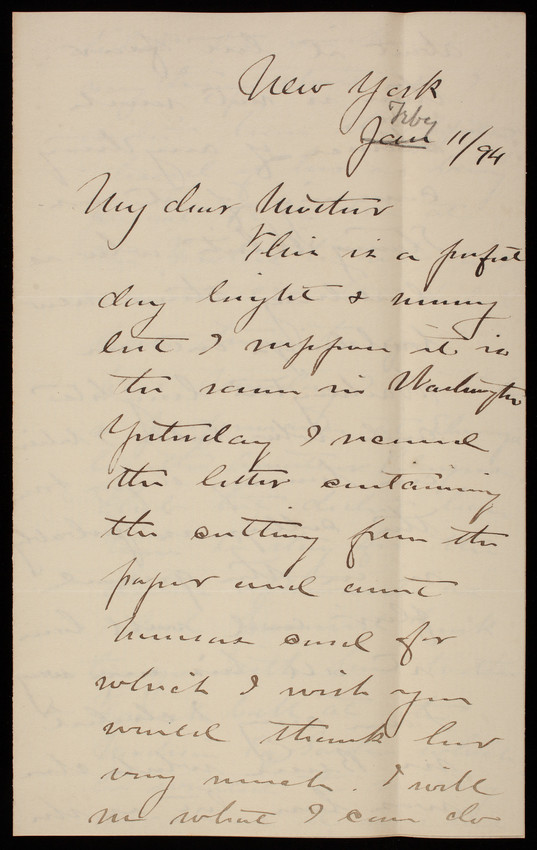 New York
Feby
Jan 11/94
My dear Mother
This is a perfect
day bright & sunny
but I suppose it is
the same in Washington
Yesterday I received
the letter containing
the cutting from the
paper and aunt
card for
which I wish you
would thank her
very much. I will
see what I can do